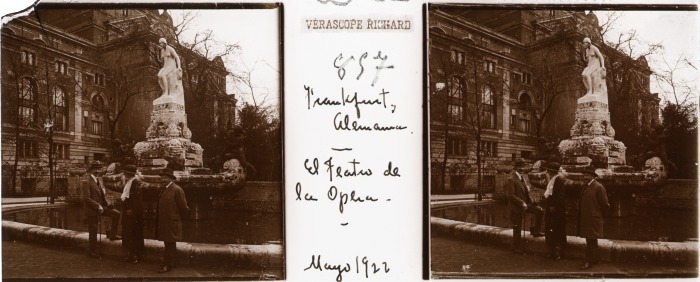 VERASCOPE RICHARD
857
Frankfurt,
Alemania.
El Teatro de
la Opera.
Mayo 1922